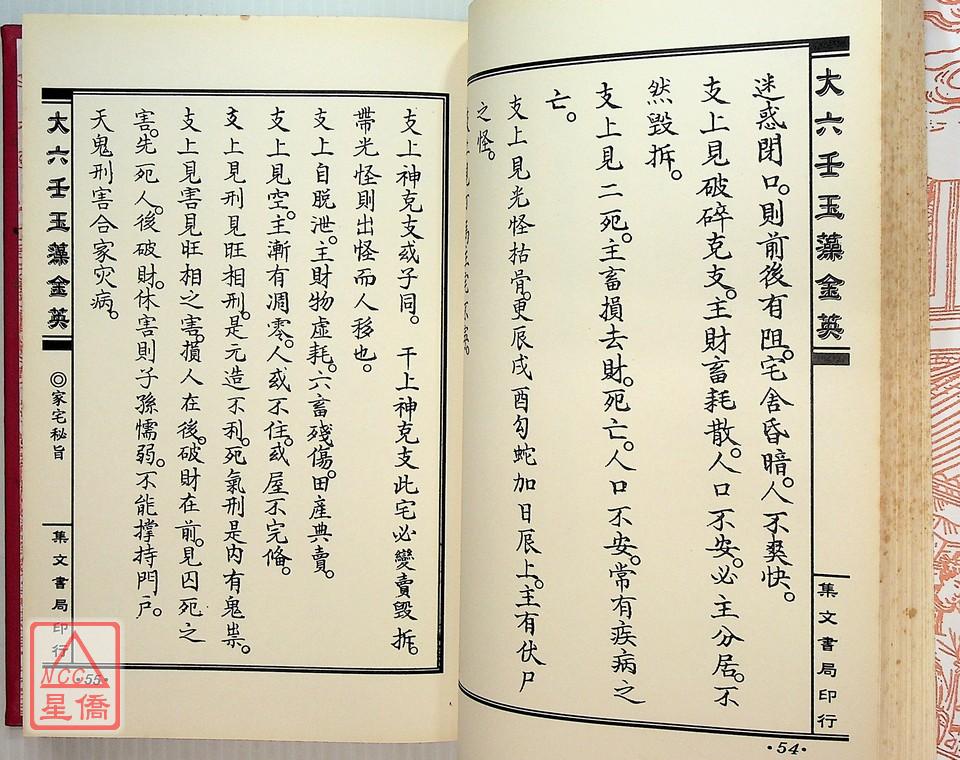 大六壬玉藻金英
集文書局印行
·54·
迷惑閉口。則前後有阻。宅舍昏暗。人不爽快。
支上見破碎克支。主財畜耗散。人口不安。必主分居。不
然毀拆。
支上見二死。主畜損去財。死亡。人口不安。常有疾病之
亡。
支上見光怪枯骨。更辰戌酉勾蛇加日辰上。主有伏尸
之怪。
支上神克支或子同。　干上神克支此宅必變賣毀拆。
帶光怪則出怪而人移也。
支上自脱泄。主財物虛耗。六畜殘傷。田產典賣。
支上見空。主漸有凋零。人或不住。或屋不完俻。
支上見刑見旺相刑。是元造不利。死氣刑是內有鬼祟。
支上見害見旺相之害。損人在後。破財在前。見囚死之
害。先死人。後破財。休害則子孫懦弱。不能撑持門户。
天鬼刑害合家灾病。
大六壬玉藻金英
◎家宅秘旨
集文書局印行
·55·
NCC
星僑